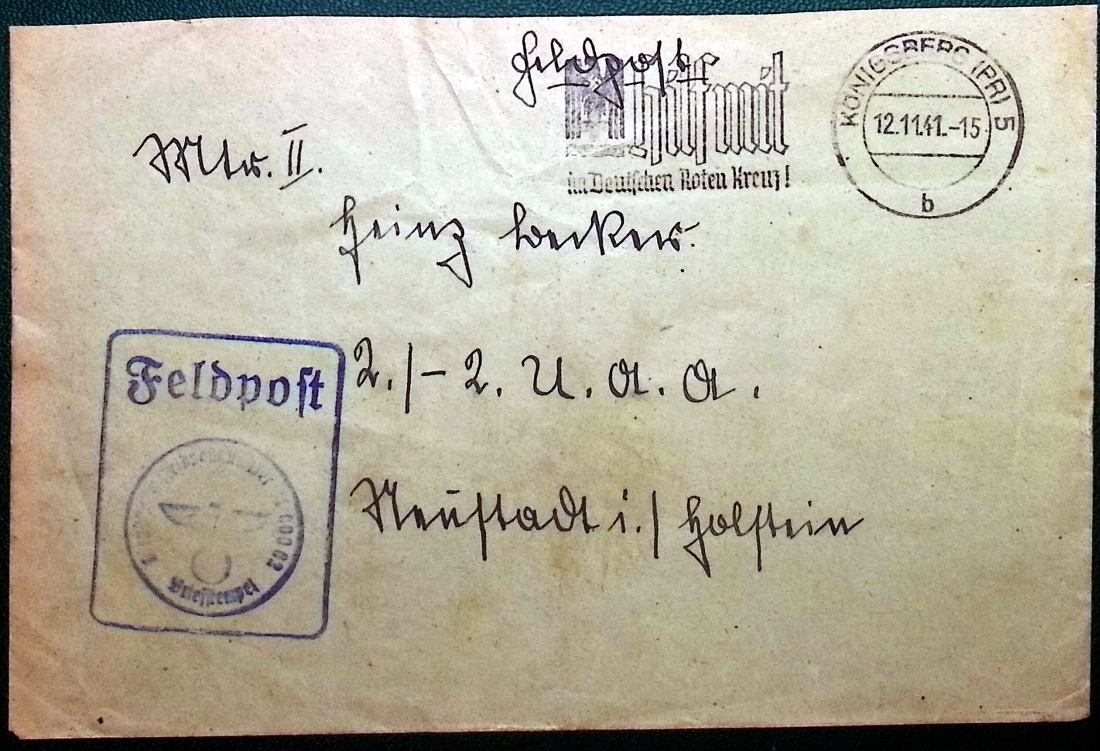 Feldpost
hilf mit
im Deutschen Roten Kreuz!
KÖNIGSBERG (PR) 5
12.11.41.-15
b
Mtr. II.
Heinz Becker.
2./- 2. U. A. A.
Neustadt i./ Holstein
Feldpost
Briefstempel